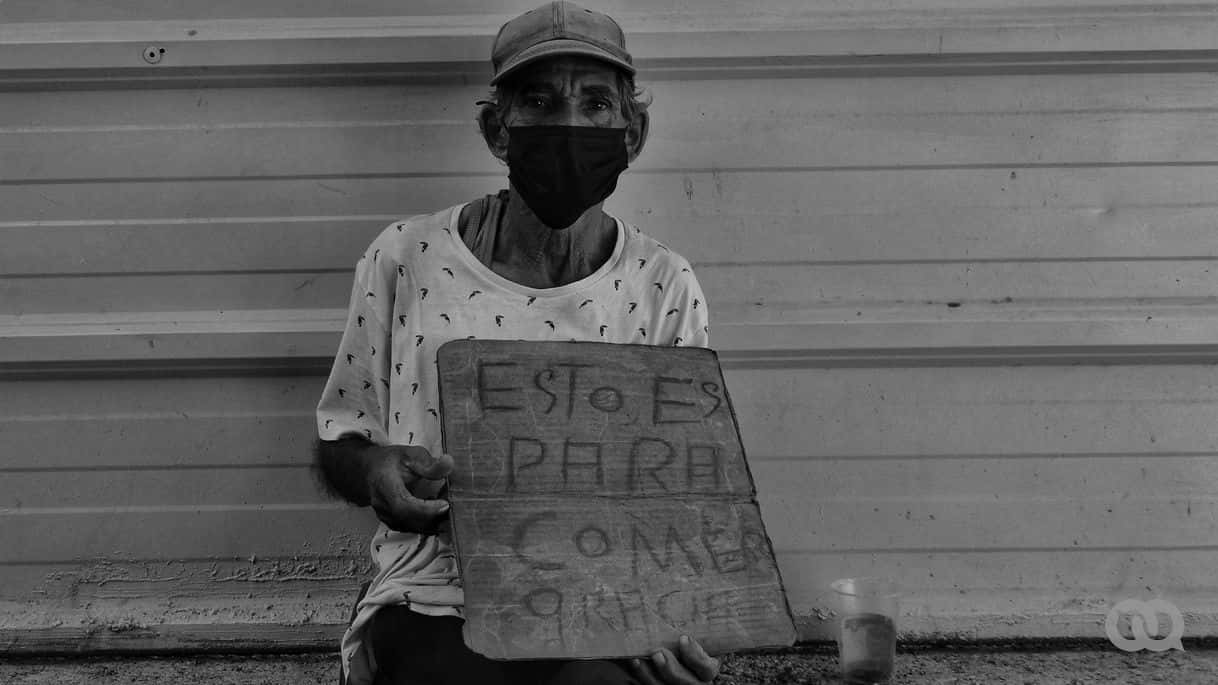 ESTO ES
PARA
COMER
GRACIE